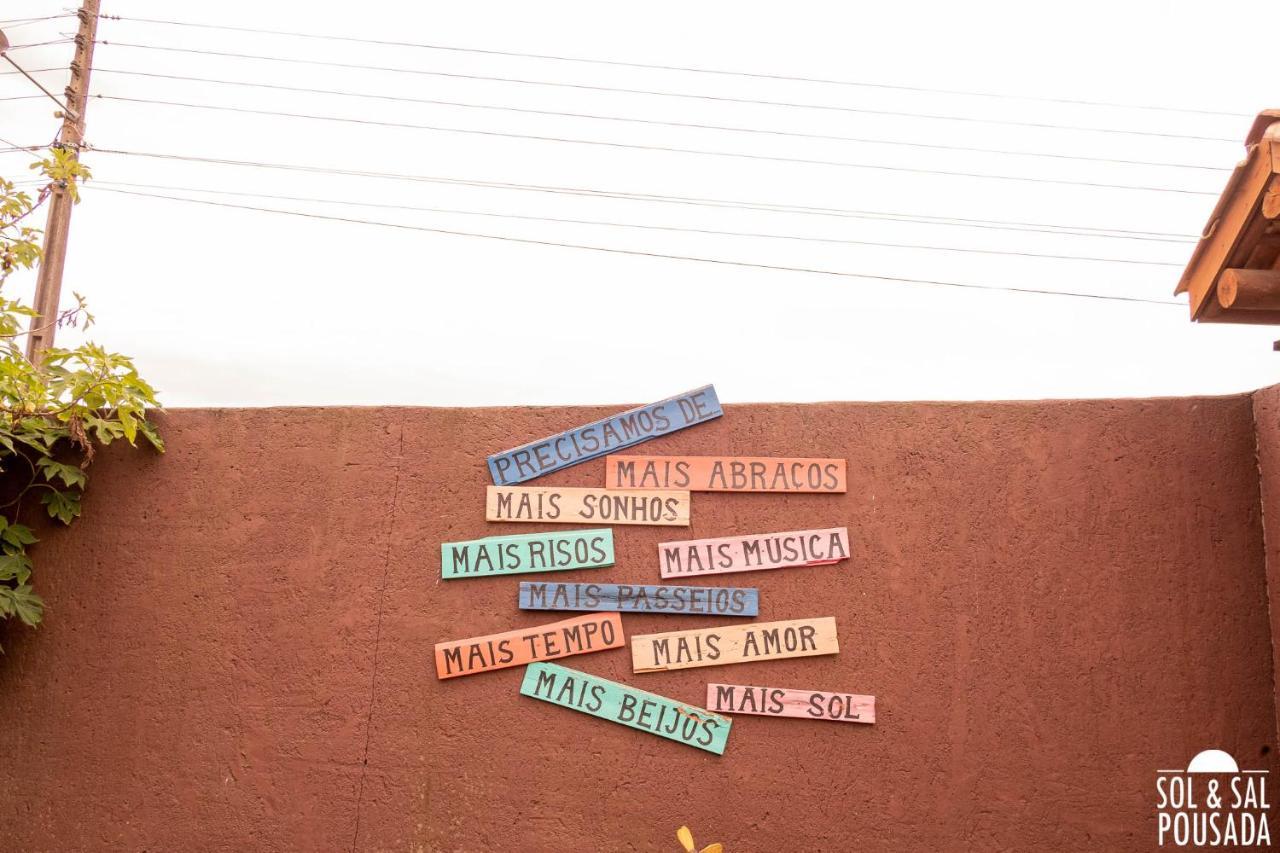 PRECISAMOS DE...
MAIS ABRAÇOS
MAIS SONHOS
MAIS RISOS
MAIS MÚSICA
MAIS PASSEIOS
MAIS TEMPO
MAIS AMOR
MAIS BEIJOS
MAIS SOL
SOL & SAL
POUSADA